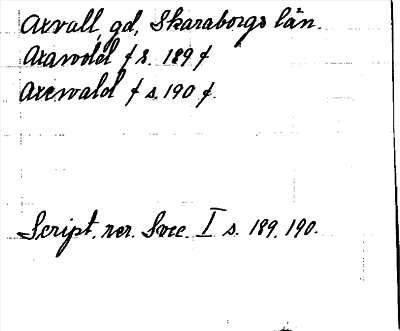 Axvall, gd, Skaraborgs län.
Axawold f s. 189 f
Axewald f s. 190 f.
Script. rer. Svec. I s. 189, 190.